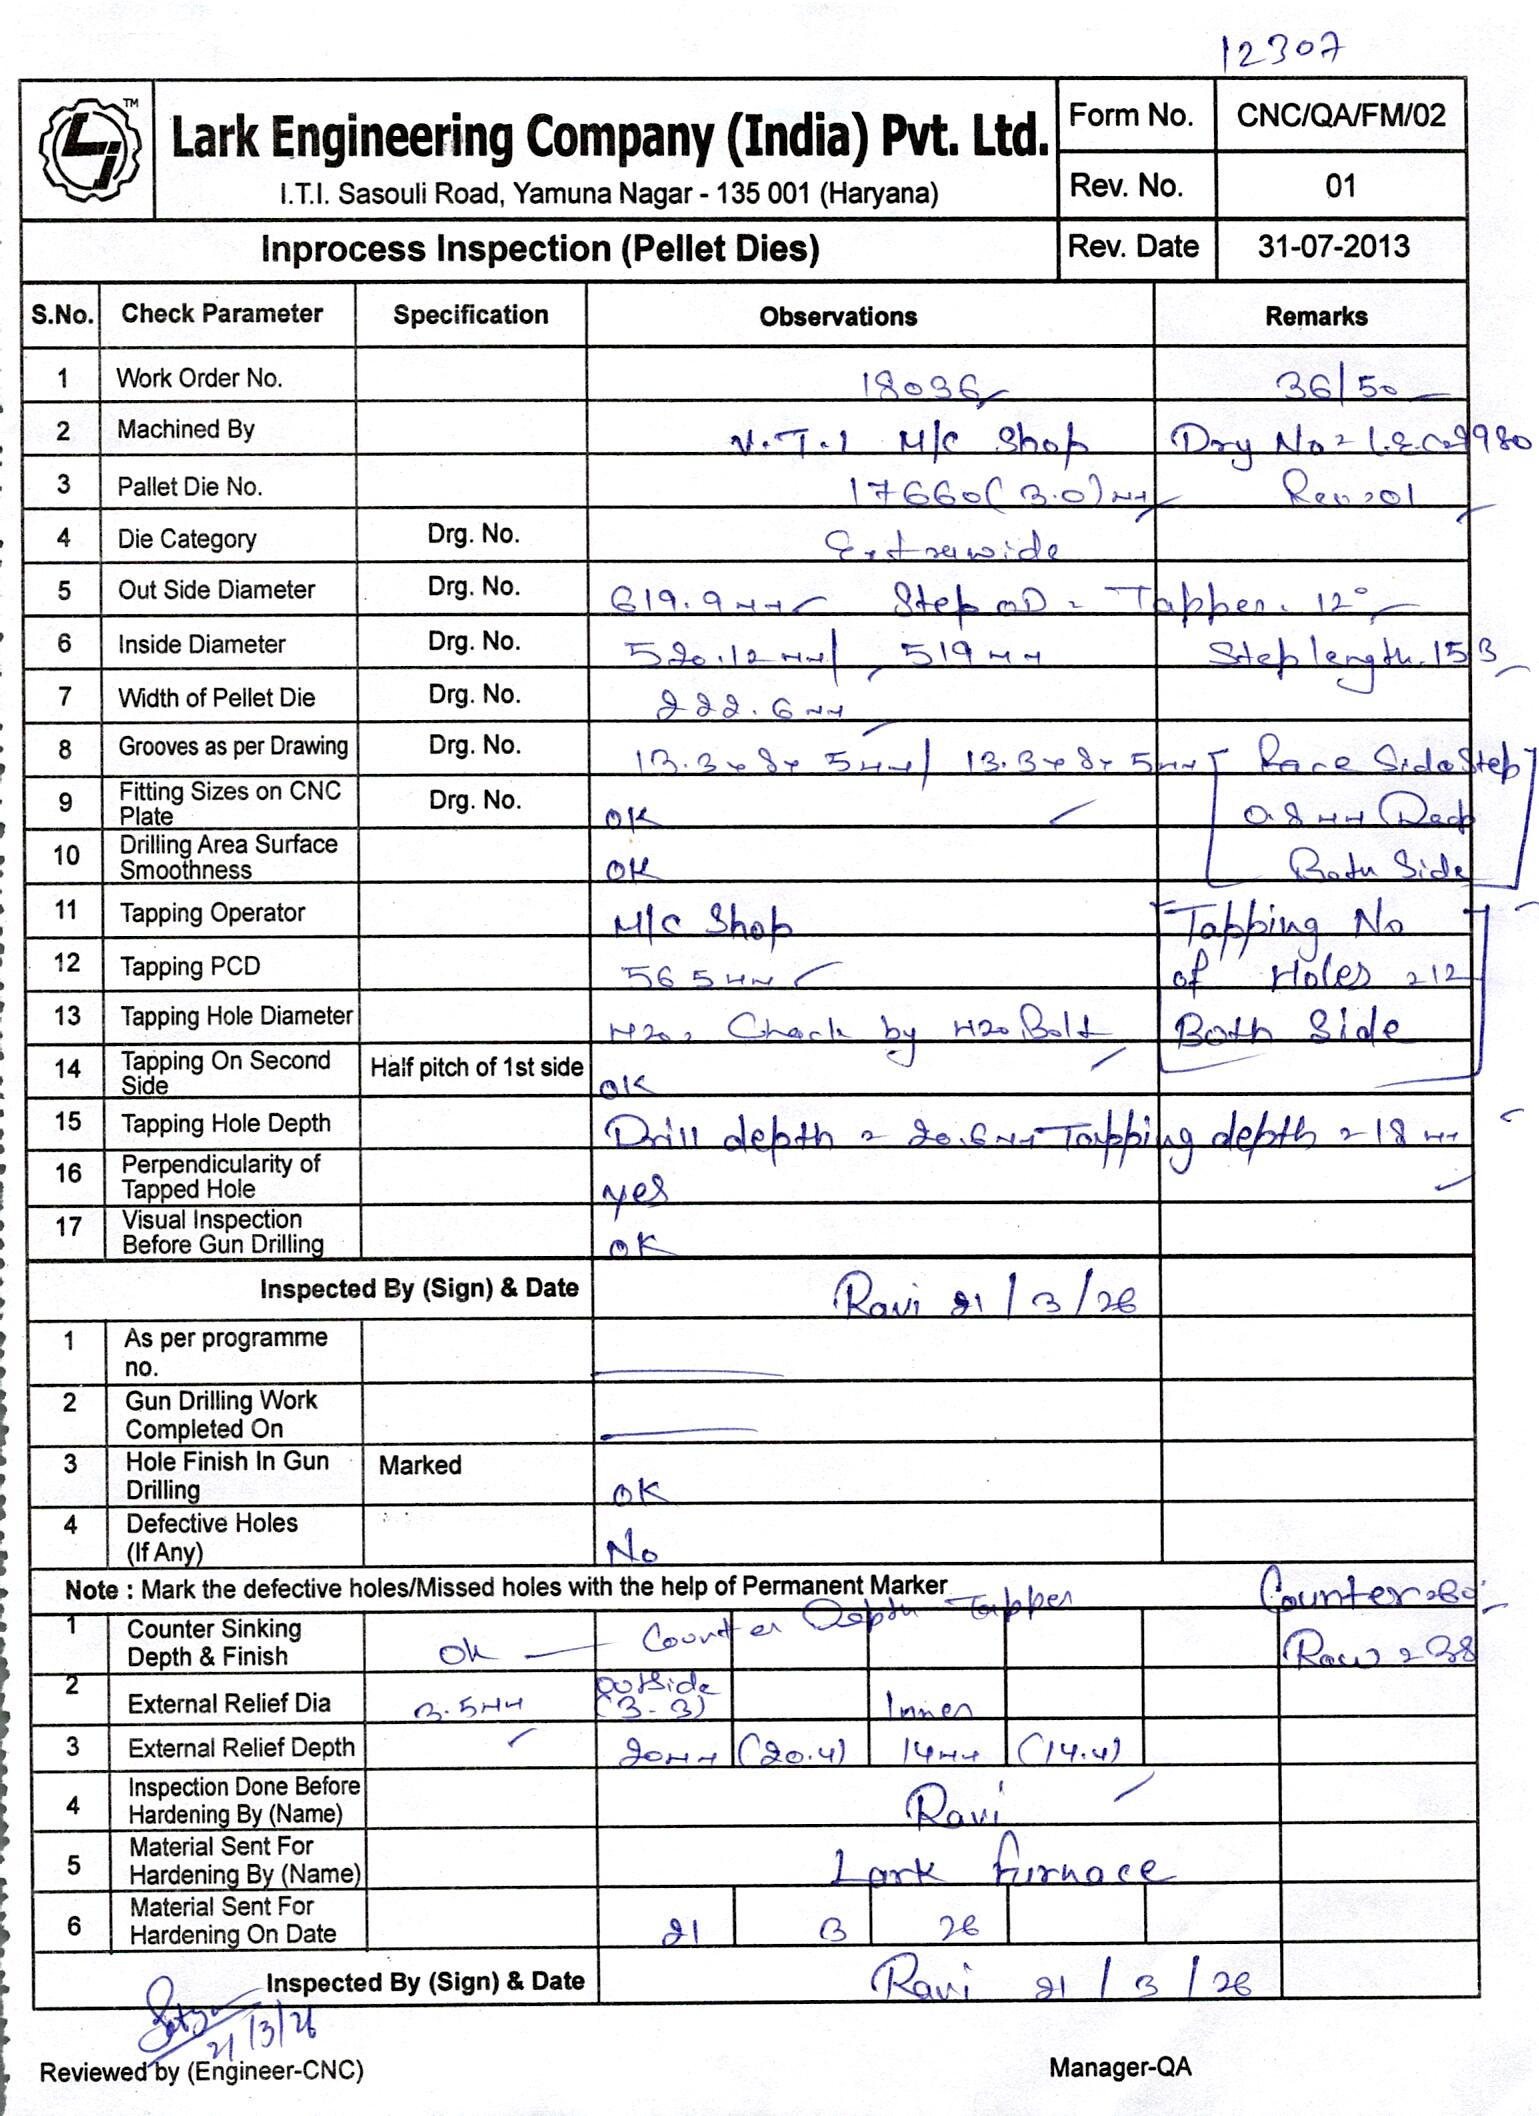 12307
TM
Lark Engineering Company (India) Pvt. Ltd.
I.T.I. Sasouli Road, Yamuna Nagar - 135 001 (Haryana)
Form No. CNC/QA/FM/02
Rev. No. 01
Inprocess Inspection (Pellet Dies) Rev. Date 31-07-2013
S.No. Check Parameter Specification Observations Remarks
1 Work Order No. 18036 36/50
2 Machined By V.T.I M/C Shop Drg No = L.E.C-2980
3 Pallet Die No. 17660 (3.0) mm Rev = 01
4 Die Category Drg. No. Extrawide
5 Out Side Diameter Drg. No. 619.9 mm Step OD = Tapper. 12°
6 Inside Diameter Drg. No. 520.12 mm/ 519 mm Step length. 153
7 Width of Pellet Die Drg. No. 222.6 mm
8 Grooves as per Drawing Drg. No. 13.3 x 8 x 5 mm / 13.3 x 8 x 5 mm [ Race Side Step ]
9 Fitting Sizes on CNC Plate Drg. No. OK 0.8 mm Deep
10 Drilling Area Surface Smoothness OK Both Side
11 Tapping Operator M/C Shop Tapping No
12 Tapping PCD 565 mm of Holes = 12
13 Tapping Hole Diameter M20 = Check by M20 Bolt Both Side
14 Tapping On Second Side Half pitch of 1st side OK
15 Tapping Hole Depth Drill depth = 20.6 mm Tapping depth = 18 mm
16 Perpendicularity of Tapped Hole yes
17 Visual Inspection Before Gun Drilling OK
Inspected By (Sign) & Date Ravi 21/3/26
1 As per programme no.
2 Gun Drilling Work Completed On
3 Hole Finish In Gun Drilling Marked OK
4 Defective Holes (If Any) No
Note : Mark the defective holes/Missed holes with the help of Permanent Marker
Counter = 60°
1 Counter Sinking Depth & Finish Ok Counter Depth Tapper Row = 38
2 External Relief Dia 3.5 mm Outside (3-3) Inner
3 External Relief Depth 20 mm (20.4) 14 mm (14.4)
4 Inspection Done Before Hardening By (Name) Ravi
5 Material Sent For Hardening By (Name) Lark furnace
6 Material Sent For Hardening On Date 21 3 26
Inspected By (Sign) & Date Ravi 21/3/26
21/3/26
Reviewed by (Engineer-CNC) Manager-QA